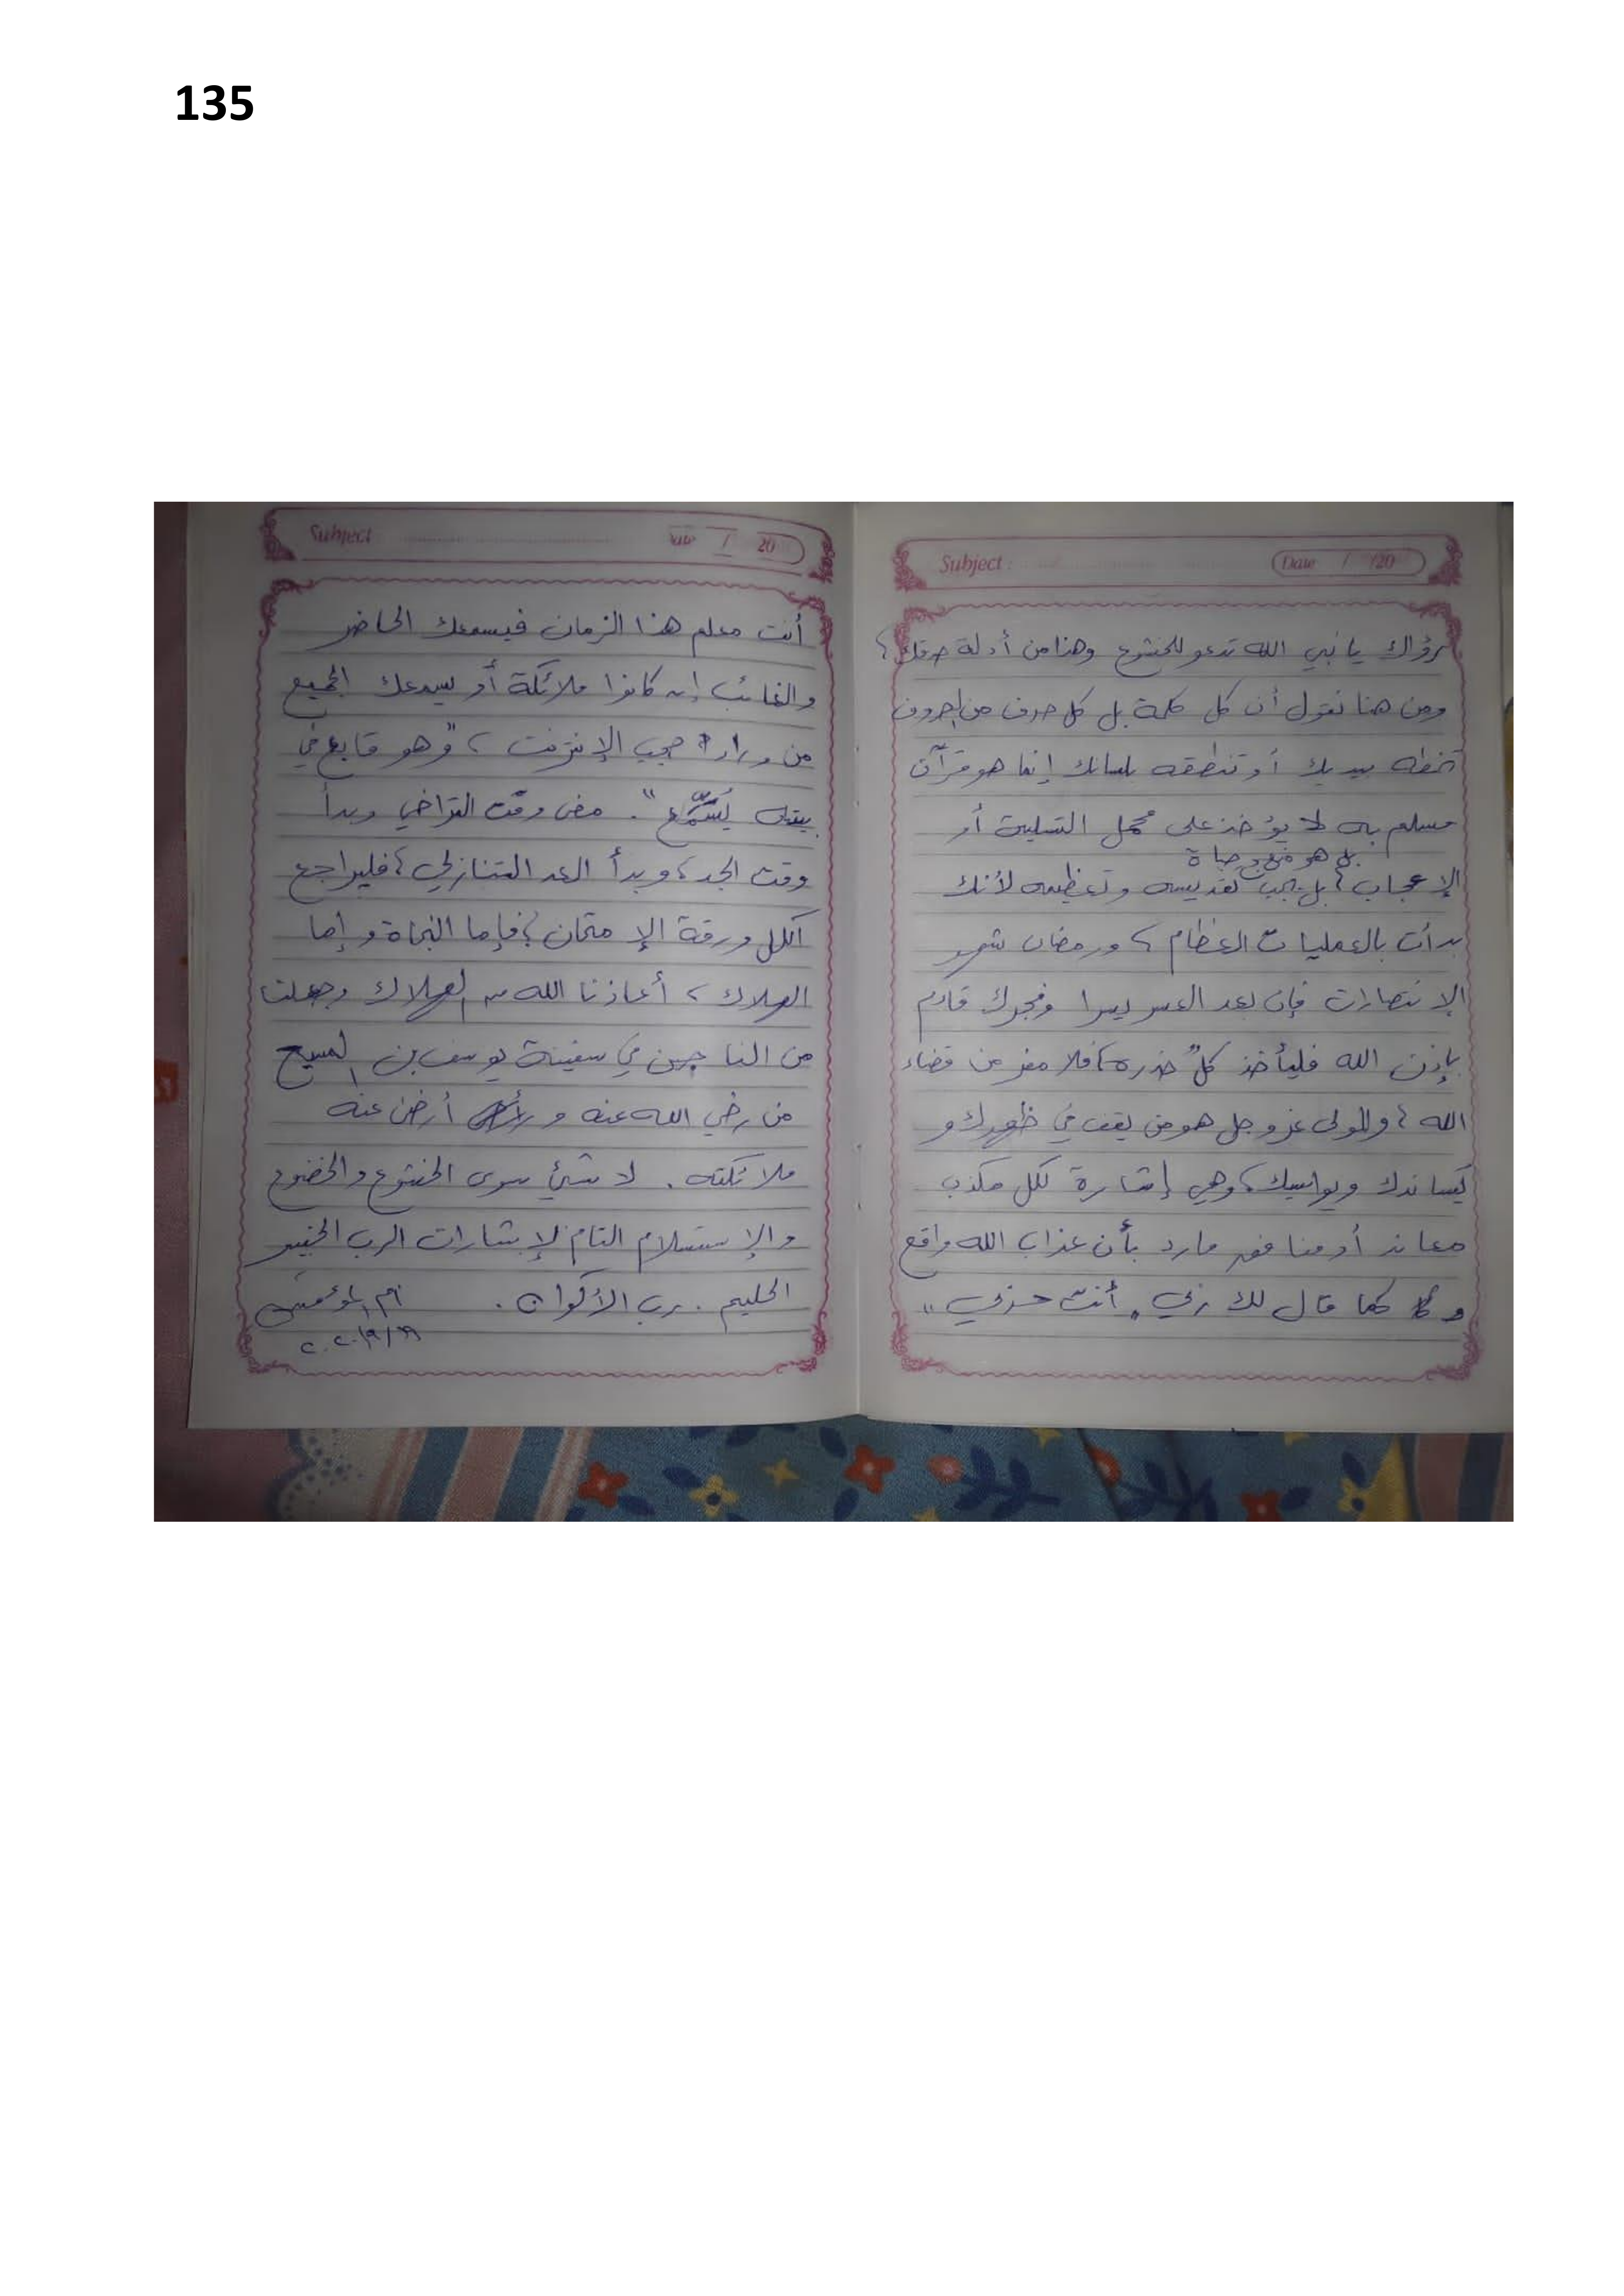 135
Subject :
Date / /20
رؤاك يا نبي الله تدعو للخشوع وهذا من أدلة صدقك ؛
ومن هنا نقول أن كل كلمة بل كل حرف من الحروف
تخطه بيديك أو تنطقه بلسانك إنما هو قرآن
مسلم به لا يؤخذ على محمل التسلية أو
بل هو منهج حياة
الإعجاب ؛ بل يجب تقديسه وتعظيمه لأنك
بدأت بالعمليات العظام ، ورمضان شهر
الإنتصارات فإن بعد العسر يسرا وفجرك قادم
بإذن الله فليأخذ كلٌ حذره ، فلا مفر من قضاء
الله ؛ والمولى عز وجل هو من يقف في ظهرك و
يساندك ويواسيك ، وهي إشارة لكل مكذب
معاند أو منافق مارد بأن عذاب الله واقع
و كما قال لك ربي " أنت حزبي "
Subject
Date / 20
أنت معلم هذا الزمان فيسمعك الحاضر
والغائب إن كانوا ملائكة أو يسمعك الجميع
من وراء حجب الإنترنت ، " وهو قابع في
بيته يُسَمِّع " . مضى وقت التراخي وبدأ
وقت الجد ، وبدأ العد التنازلي ؛ فليراجع
الكل ورقة الإمتحان ؛ فإما النجاة وإما
الهلاك ، أعاذنا الله من الهلاك وجعلنا
من الناجين في سفينة يوسف بن المسيح
من رضي الله عنه و أرضى عنه
ملائكته . لا شيئ سوى الخشوع والخضوع
والإستسلام التام لإشارات الرب الخبير
الحليم . رب الأكوان .
أم المؤمنين